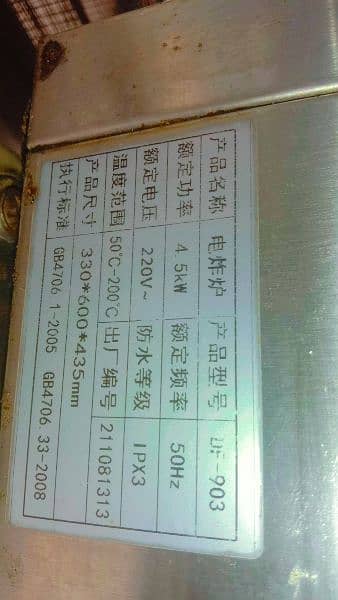 产品名称 电炸炉 产品型号 DF-903
额定功率 4.5kW 额定频率 50Hz
额定电压 220V~ 防水等级 IPX3
温度范围 50℃-200℃ 出厂编号 211081313
产品尺寸 330*600*435mm
执行标准 GB4706.1-2005 GB4706.33-2008